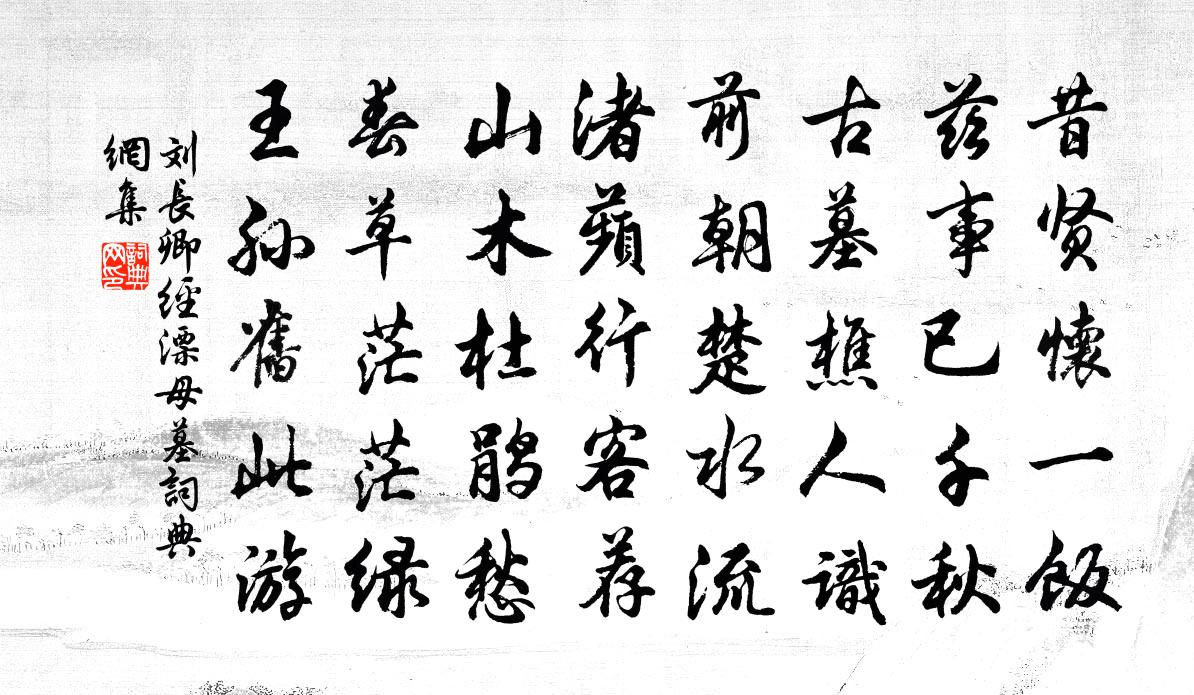 昔贤懷一飯
兹事已千秋
古墓樵人識
前朝楚水流
渚蘋行客荐
山木杜鹃愁
春草茫茫绿
王孙舊此游
刘長卿經漂母墓詞典
網集
詞典网印